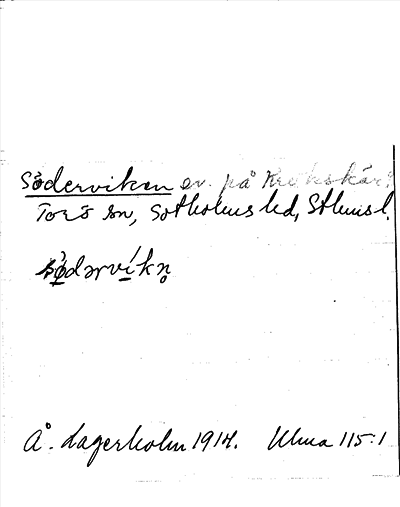 Söderviken ev. på Krokskär?
Torö sn, Sotholms hd, Sthms l.
sö̀dərví́kn̥
Å. Lagerholm 1914. Ulma 115:1